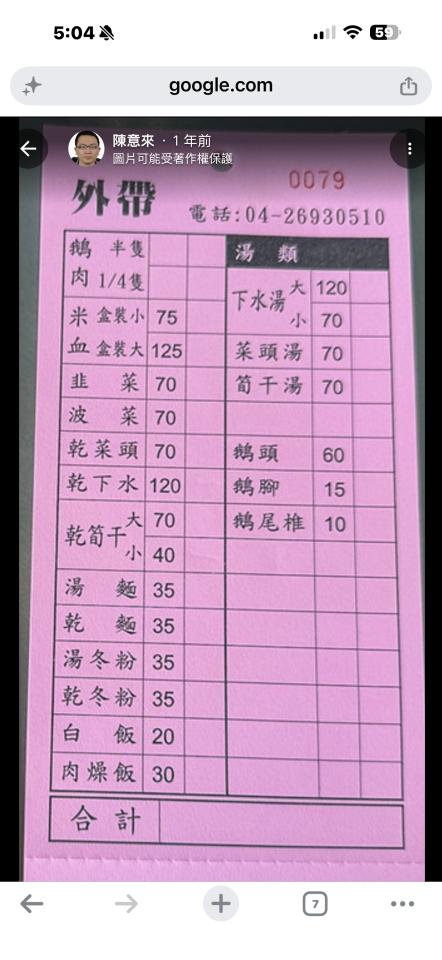 5:04
59
google.com
陳意來 · 1 年前
圖片可能受著作權保護
0079
外帶
電話:04-26930510
鵝肉 半隻
1/4隻
米血 盒裝小 75
盒裝大 125
韭菜 70
波菜 70
乾菜頭 70
乾下水 120
乾筍干 大 70
小 40
湯麵 35
乾麵 35
湯冬粉 35
乾冬粉 35
白飯 20
肉燥飯 30
湯類
下水湯 大 120
小 70
菜頭湯 70
筍干湯 70
鵝頭 60
鵝腳 15
鵝尾椎 10
合計
7